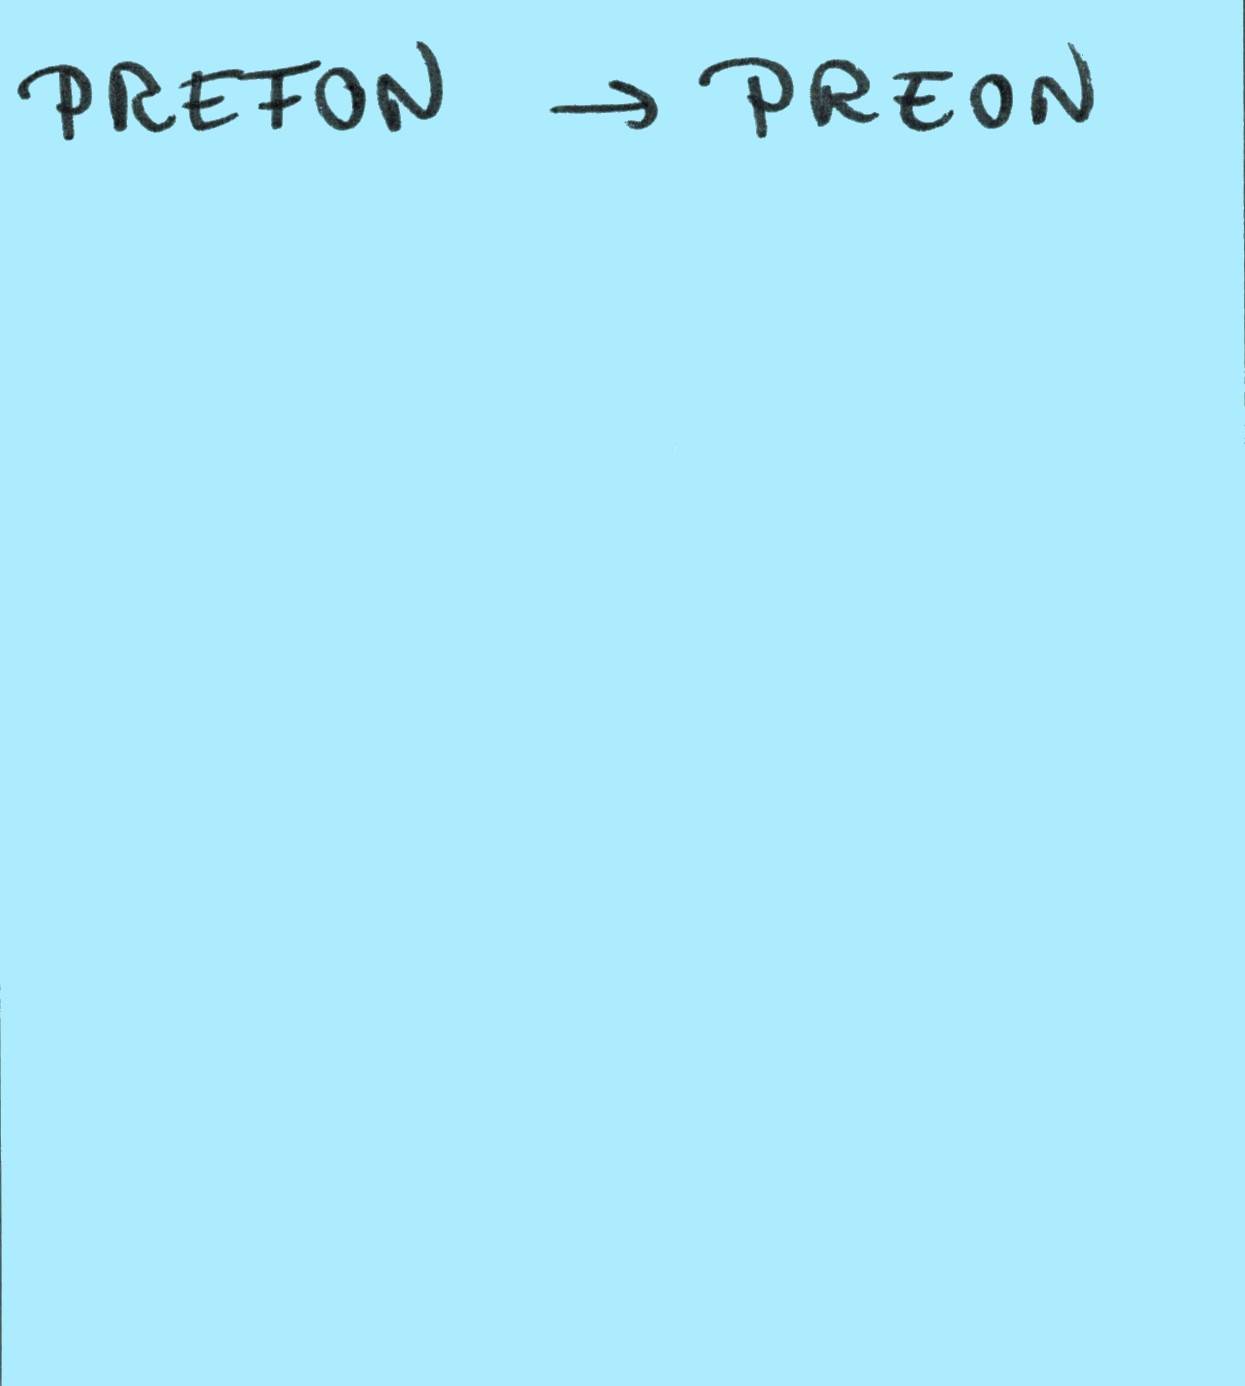 PREFON → PREON